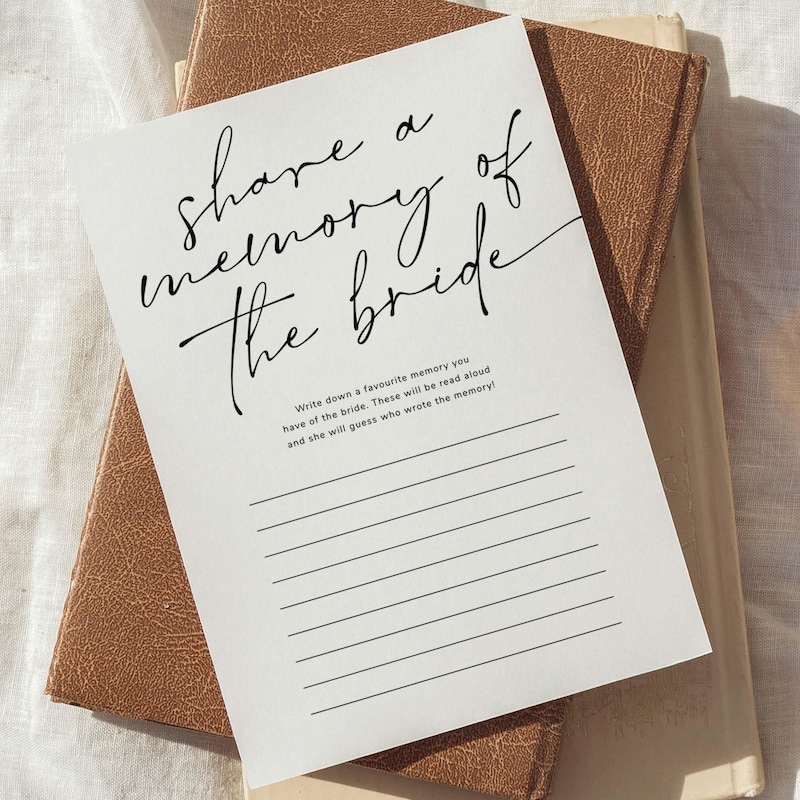 share a
memory of
the bride
Write down a favourite memory you
have of the bride. These will be read aloud
and she will guess who wrote the memory!